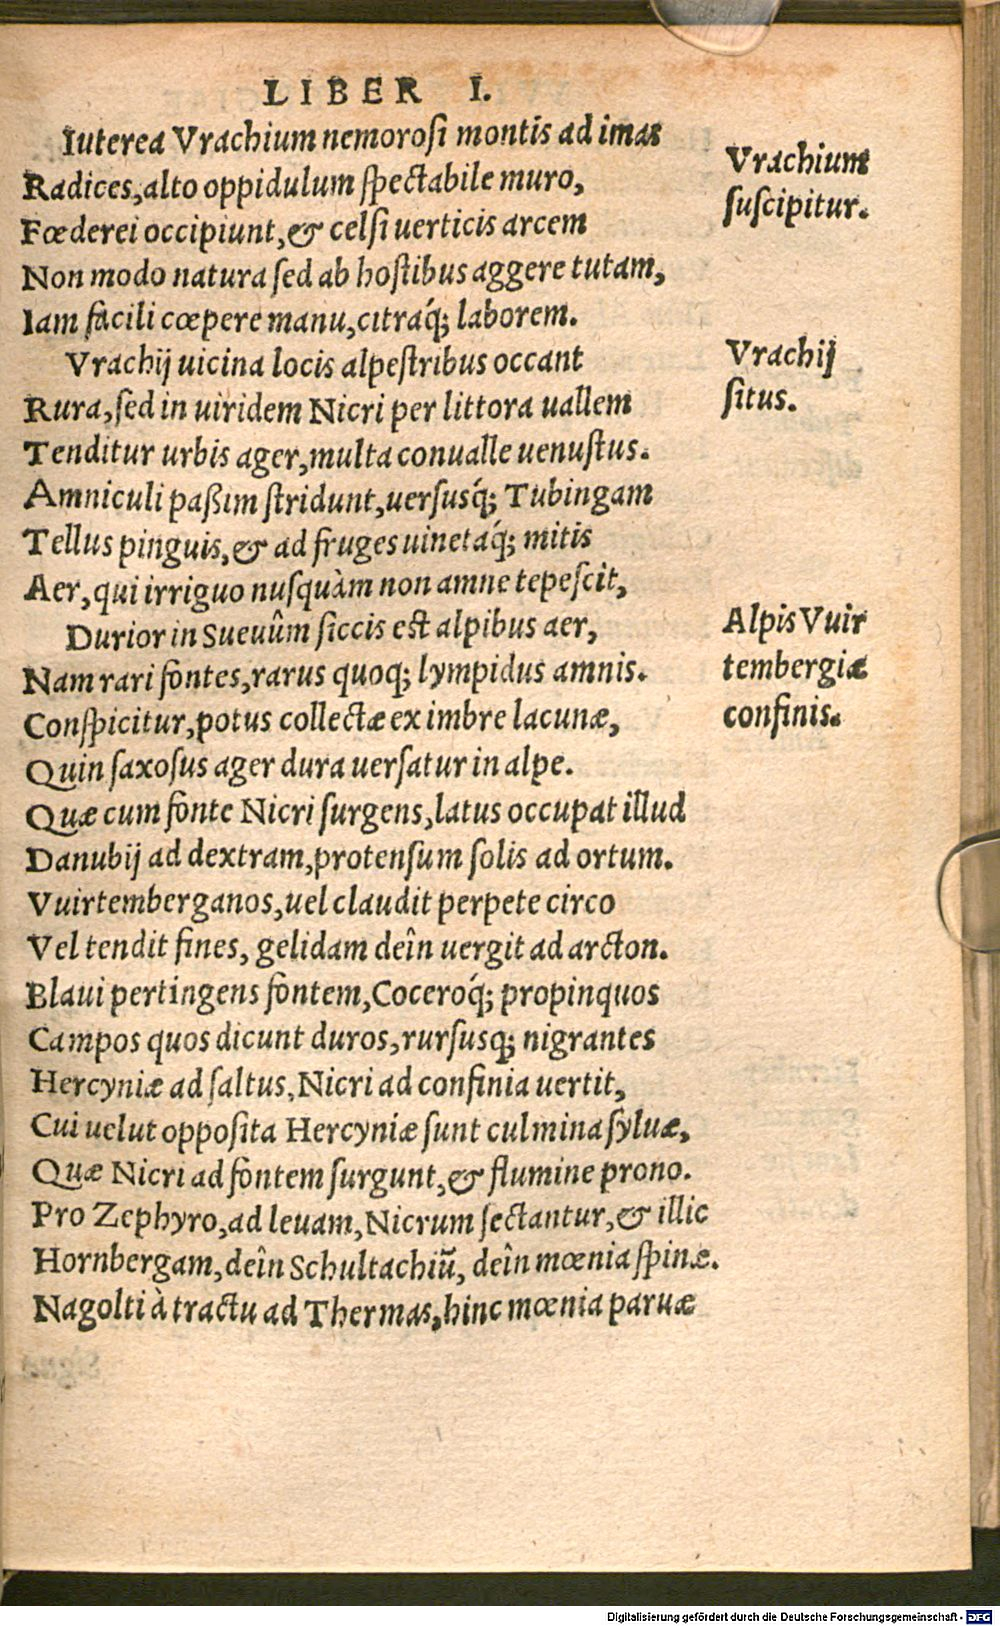 LIBER I.
Iuterea Vrachium nemorosi montis ad imas
Radices, alto oppidulum spectabile muro,
Fœderei occipiunt, & celsi uerticis arcem
Non modo natura sed ab hostibus aggere tutam,
Iam facili cœpere manu, citraq́; laborem.
Vrachij uicina locis alpestribus occant
Rura, sed in uiridem Nicri per littora uallem
Tenditur urbis ager, multa conualle uenustus.
Amniculi paßim stridunt, uersusq́; Tubingam
Tellus pinguis, & ad fruges uinetaq́; mitis
Aer, qui irriguo nusquàm non amne tepescit,
Durior in Sueuûm siccis est alpibus aer,
Nam rari fontes, rarus quoq; lympidus amnis.
Conspicitur, potus collectæ ex imbre lacunæ,
Quin saxosus ager dura uersatur in alpe.
Quæ cum fonte Nicri surgens, latus occupat illud
Danubij ad dextram, protensum solis ad ortum.
Vuirtemberganos, uel claudit perpete circo
Vel tendit fines, gelidam deîn uergit ad arcton.
Blaui pertingens fontem, Coceroq́; propinquos
Campos quos dicunt duros, rursusq; nigrantes
Hercyniæ ad saltus, Nicri ad confinia uertit,
Cui uelut opposita Hercyniæ sunt culmina syluæ,
Quæ Nicri ad fontem surgunt, & flumine prono.
Pro Zephyro, ad leuam, Nicrum sectantur, & illic
Hornbergam, deîn Schultachiũ, deîn mœnia spinæ.
Nagolti à tractu ad Thermas, hinc mœnia paruæ
Vrachium
suscipitur.
Vrachij
situs.
Alpis Vuir
tembergiæ
confinis.
Digitalisierung gefördert durch die Deutsche Forschungsgemeinschaft - DFG